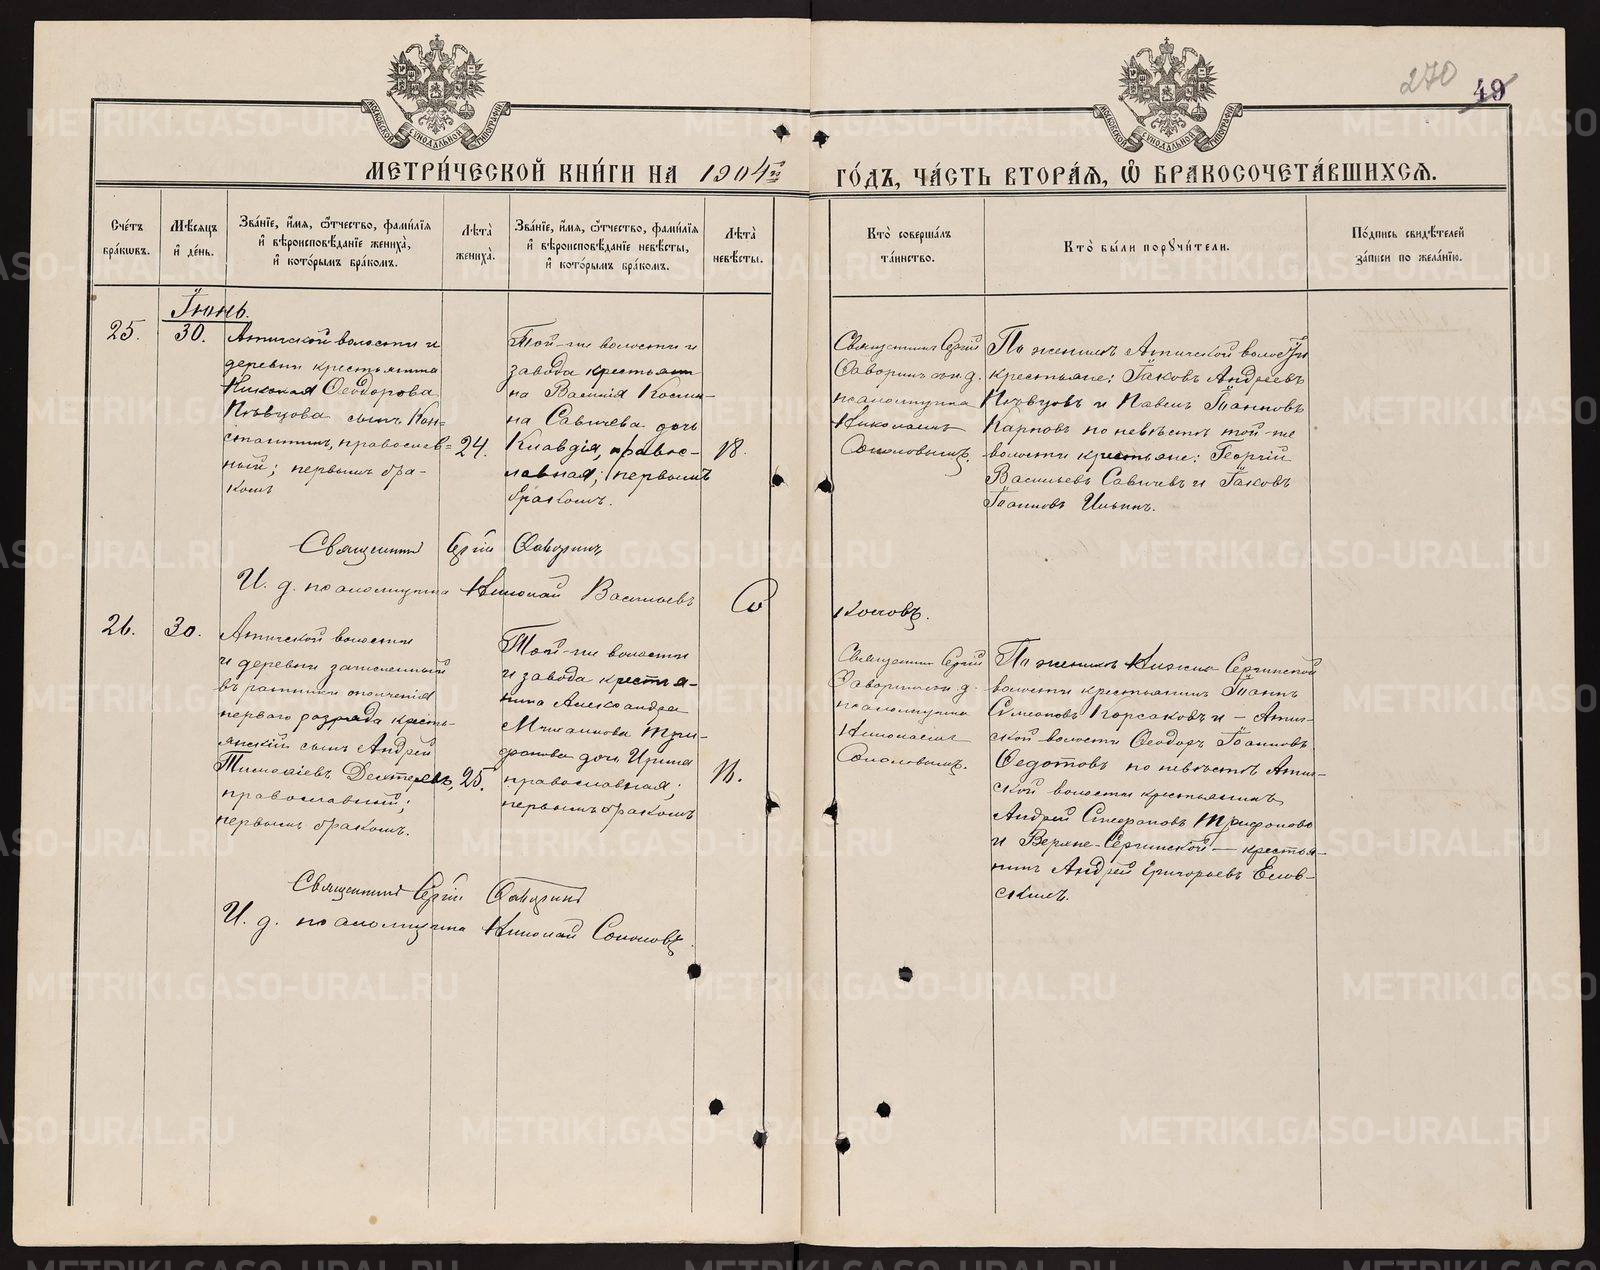 270
49
МОСКОВСКОЙ СѴНОДАЛЬНОЙ ТИПОГРАФІИ
МОСКОВСКОЙ СѴНОДАЛЬНОЙ ТИПОГРАФІИ
МЕТРИ́ЧЕСКОЙ КНИ́ГИ НА 1904й ГО́ДЪ, ЧА́СТЬ ВТОРА́Я, Ѽ БРАКОСОЧЕТА́ВШИХСЯ.
Сче́тъ бра́кѡвъ.
Мѣ́сяцъ и҆ де́нь.
Зва́нїе, и҆́мя, ѻ҆́тчество, фами́лїя и҆ вѣроисповѣ́данїе жениха̀, и҆ кото́рымъ бра́комъ.
Лѣ́та жениха̀.
Зва́нїе, и҆́мя, ѻ҆́тчество, фами́лїя и҆ вѣроисповѣ́данїе невѣ́сты, и҆ кото́рымъ бра́комъ.
Лѣ́та невѣ́сты.
Кто̀ соверша́лъ та́инство.
Кто̀ бы́ли порꙋчи́тели.
По́дпись свидѣ́телей за́писи по жела́нїю.
Іюнь.
25.
30.
Атигской волости и
деревни крестьянина
Николая Ѳеодорова
Пѣвцова сынъ Кон=
стантинъ, православ=
ный; первымъ бра-
комъ
24.
Той-же волости и
завода крестьяни
на Василія Косми-
на Савичева дочь
Клавдія, правос-
лавная; первымъ
бракомъ.
18.
Священникъ Сергій
Фаворинъ съ и. д.
псаломщика
Николаемъ
Соколовымъ.
По женихѣ Атигской волости
крестьяне: Іаковъ Андреевъ
Пѣвцовъ и Павелъ Іоанновъ
Карповъ по невѣстѣ той-же
волости крестьяне: Георгій
Васильевъ Савичевъ и Іаковъ
Іоанновъ Ильинъ.
Священникъ Сергій Фаворинъ
И. д. псаломщика Николай Васильевъ Со
коловъ.
26.
30.
Атигской волости
и деревни зачисленный
въ ратники ополченія
перваго разряда кресть-
янскій сынъ Андрей
Тимоѳіевъ Дехтеревъ,
православный;
первымъ бракомъ.
25.
Той-же волости
и завода крестья-
нина Александра
дочь Ирина
православная;
первымъ бракомъ
18.
Священникъ Сергій
Фаворинъ съ и. д.
псаломщика
Николаемъ
Соколовымъ.
По женихѣ Нижне-Сергинской
волости крестьянинъ Іоаннъ
Сѵмеоновъ Корсаковъ и - Атиг-
ской волости Ѳеодоръ Іоанновъ
Ѳедотовъ по невѣстѣ Атиг-
ской волости крестьянинъ
Андрей Стефановъ Трифоновъ
и Верхне-Сергинской - крестья-
нинъ Андрей Григорьевъ Елов-
скихъ.
Священникъ Сергій Фаворинъ
И. д. псаломщика Николай Соколовъ.
METRIKI.GASO-URAL.RU